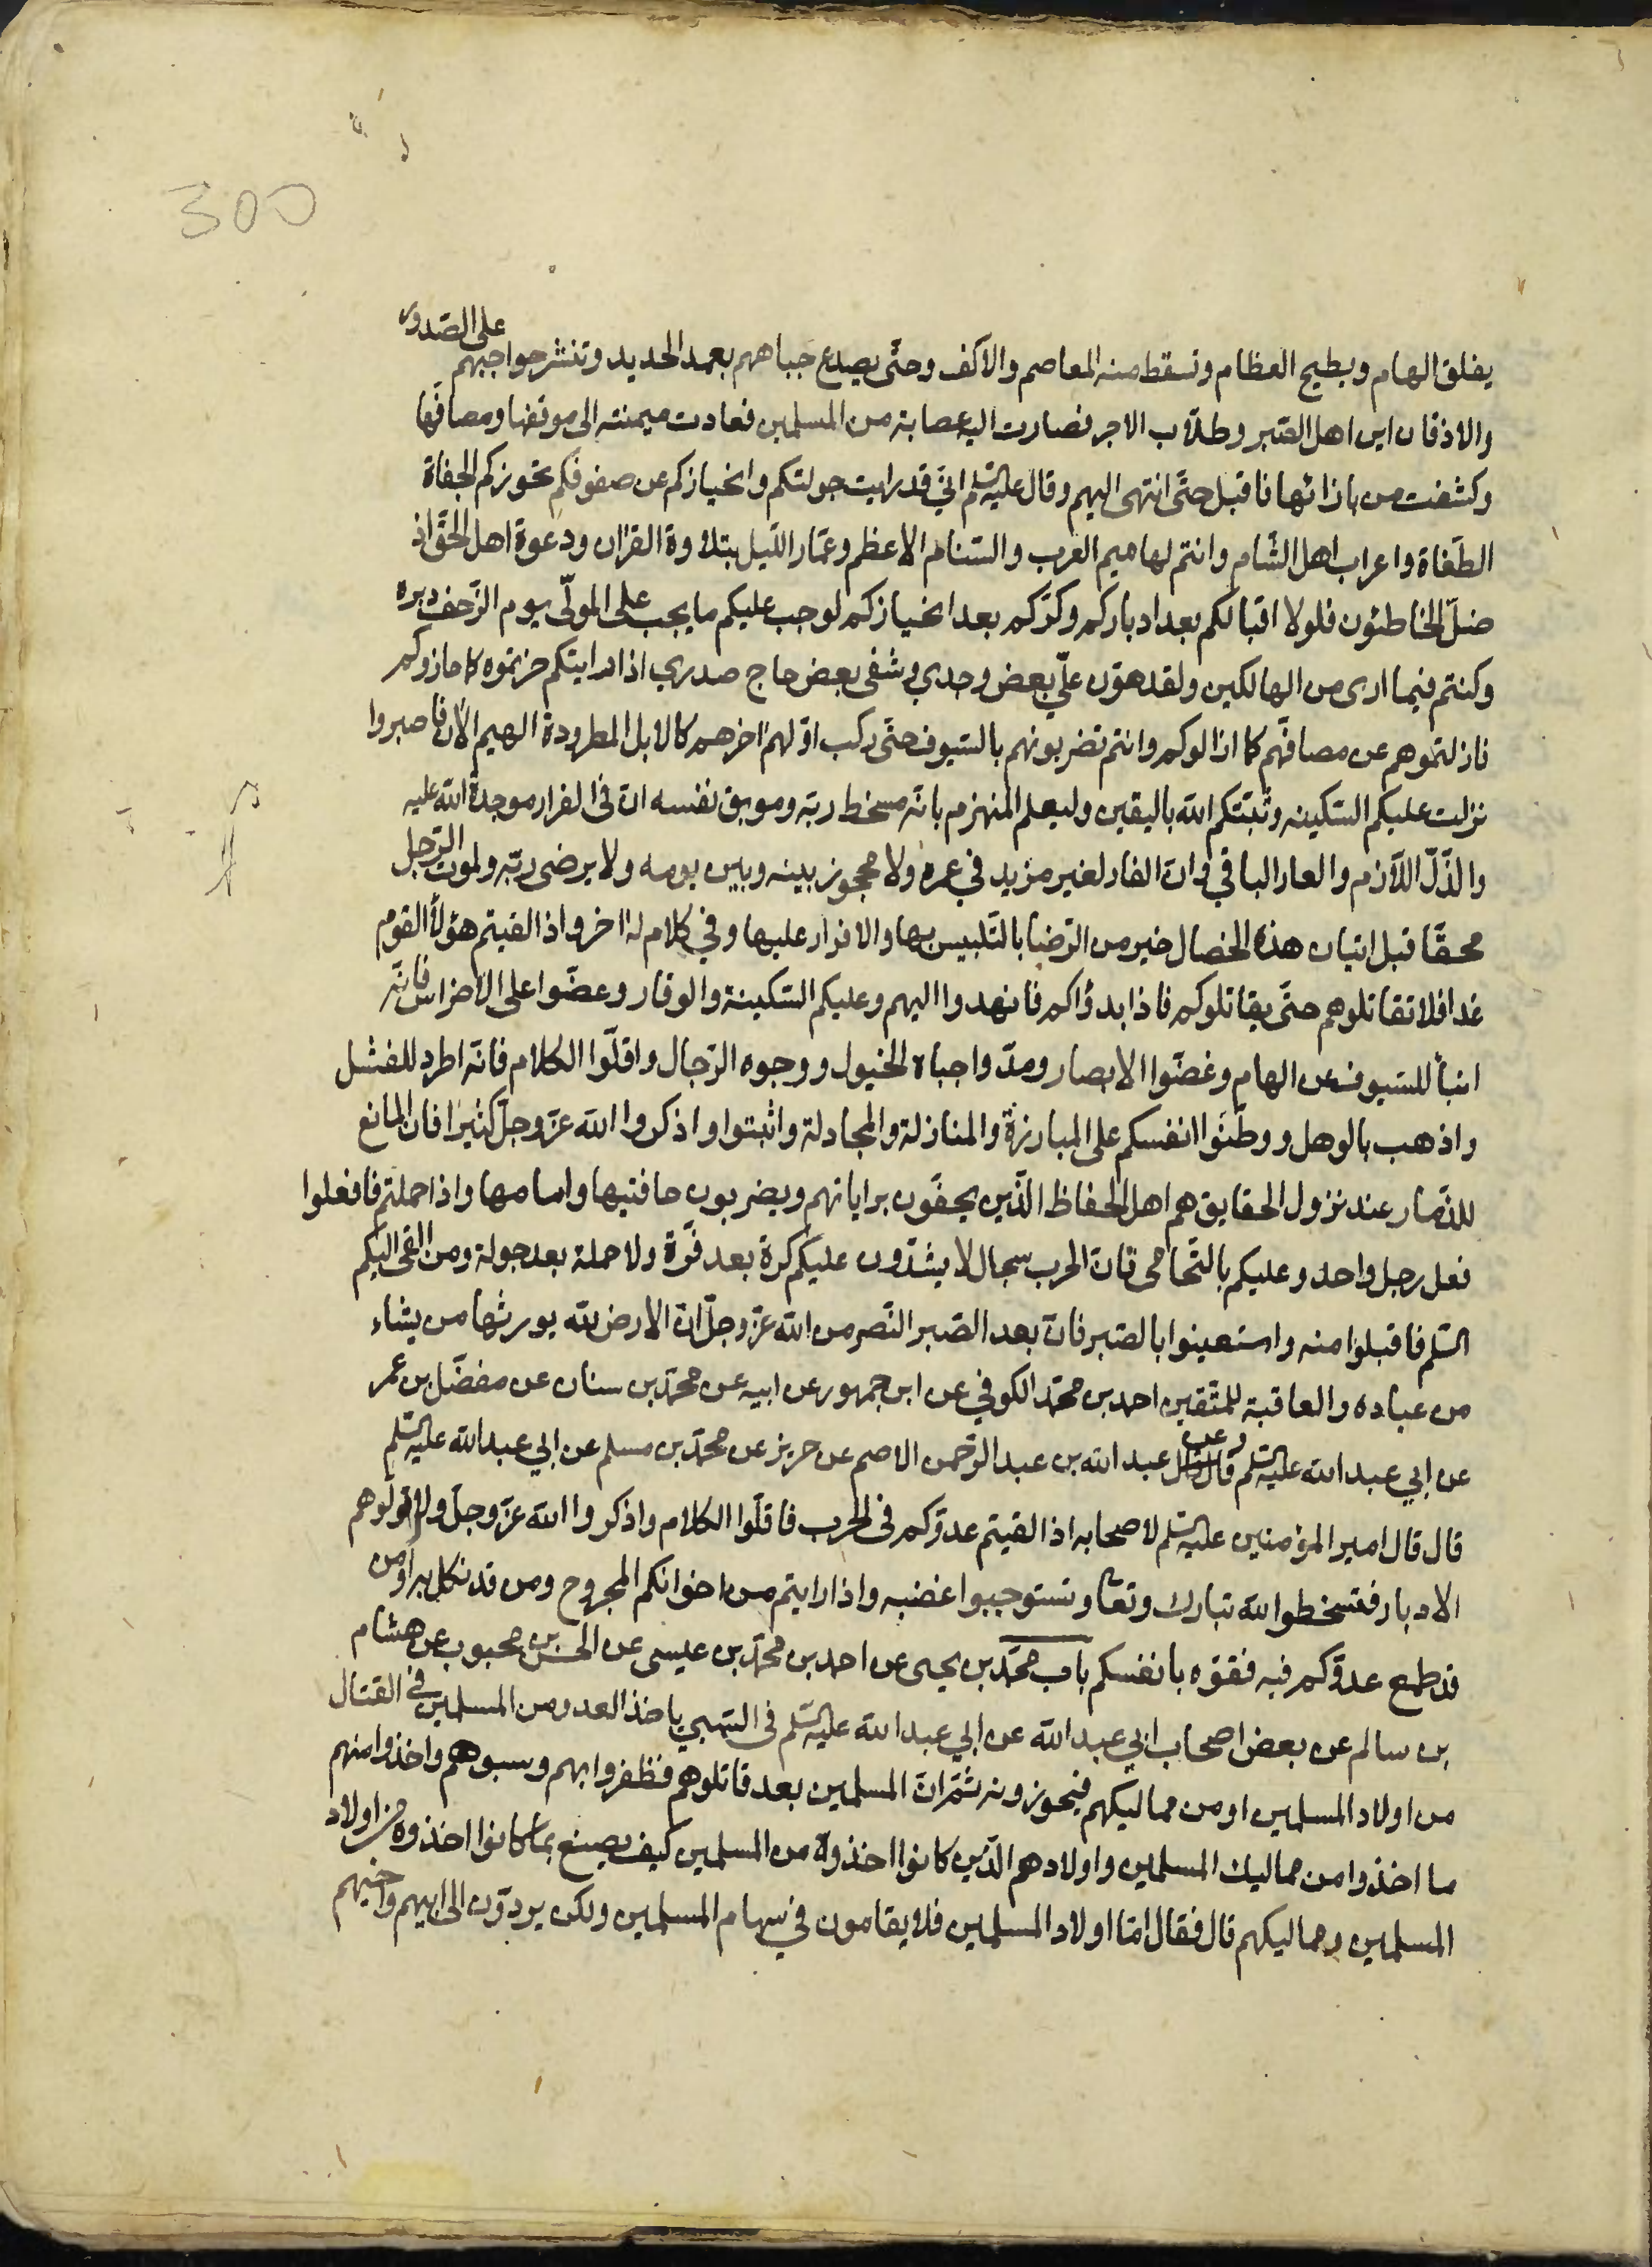 300
يفلق الهام ويطيح العظام وتسقط منه المعاصم والاكف وحتّى يصدع جباههم بعمد الحديد وتنشر حواجبهم على الصّدور
والاذقان اين اهل الصّبر وطلّاب الاجر فصارت اليه عصابة من المسلمين فعادت ميمنته الى موقفها ومصافّها
وكشفت من بازائها فاقبل حتّى انتهى اليهم وقال عليه السّلم انّي قد رايت جولتكم وانحيازكم عن صفوفكم تحوزكم الجفاة
الطّغاة واعراب اهل الشّام وانتم لهاميم العرب والسّنام الاعظم وعمّار اللّيل بتلاوة القرآن ودعوة اهل الحقّ اذ
ضلّ الخاطئون فلولا اقبالكم بعد ادباركم وكرّكم بعد انحيازكم لوجب عليكم ما يجب على المولّى يوم الزّحف دبره
وكنتم فيما ارى من الهالكين ولقد هوّن علّي بعض وجدي وشفى بعض حاج صدري اذا رايتكم حزتموه كما حازوكم
فازلتموهم عن مصافّهم كما ازالوكم وانتم تضربونهم بالسّيوف حتّى ركب اوّلهم آخرهم كالابل المطرودة الهيم الآن فاصبروا
نزلت عليكم السّكينه وثبّتكم الله باليقين وليعلم المنهزم بانّه مسخط ربّه وموبق نفسه انّ في الفرار موجدة الله عليه
والذّلّ اللّازم والعار الباقي وانّ الفار لغير مزيد في عمره ولا محجوز بينه وبين يومه ولا يرضى ربّه ولموت الرّجل
محقّا قبل اتيان هذه الخصال خير من الرّضا بالتّلبيس بها والاقرار عليها وفي كلام له آخر واذا لقيتم هؤلآ القوم
غدا فلا تقاتلوهم حتّى يقاتلوكم فاذا بدؤاكم فانهدوا اليهم وعليكم السّكينة والوقار وعضّوا على الاضراس فانّه
انبأ للسّيوف عن الهام وغضّوا الابصار ومدّوا جباه الخيول ووجوه الرّجال واقلّوا الكلام فانّه اطرد للفشل
واذهب بالوهل ووطّنوا انفسكم على المبارزة والمنازلة والمجادلة واثبتوا واذكروا الله عزّ وجلّ كثيرا فان المانع
للذّمار عند نزول الحقايق هم اهل الحفاظ الّذين يحفّون براياتهم ويضربون حافتيها وامامها واذا حملتم فافعلوا
فعل رجل واحد وعليكم بالتّحامى فانّ الحرب سجال لا يشدّون عليكم كرة بعد فرّة ولا حملة بعد جولة ومن القى اليكم
السّلم فاقبلوا منه واستعينوا بالصّبر فانّ بعد الصّبر النّصر من الله عزّ وجلّ انّ الارض لله يورثها من يشاء
من عباده والعاقبة للمتّقين احمد بن محمّد الكوفي عن ابن جمهور عن ابيه عن محمّد بن سنان عن مفضّل بن عمر
عن ابي عبد الله عليه السّلم قال وعن عبد الله بن عبد الرّحمن الاصم عن حريز عن محمّد بن مسلم عن ابي عبد الله عليه السّلم
قال قال امير المؤمنين عليه السّلم لاصحابه اذا لقيتم عدوّكم في الحرب فاقلّوا الكلام واذكروا الله عزّ وجلّ ولا تولّوهم
الادبار فتسخطوا الله تبارك وتعا وتستوجبوا غضبه واذا رايتم من اخوانكم المجروح ومن قد نكل به او من
قد طمع عدوّكم فيه فقوّه بانفسكم باب محمّد بن يحيى عن احمد بن محمّد بن عيسى عن الحسن بن محبوب عن هشام
بن سالم عن بعض اصحاب ابي عبد الله عن ابي عبد الله عليه السّلم في السّبي ياخذ العدو من المسلمين في القتال
من اولاد المسلمين او من مماليكهم فيحوزونه ثمّ انّ المسلمين بعد قاتلوهم فظفروا بهم وسبوهم واخذوا منهم
ما اخذوا من مماليك المسلمين واولادهم الّذين كانوا اخذوه من المسلمين كيف يصنع بما كانوا اخذوه من اولاد
المسلمين ومماليكهم قال فقال امّا اولاد المسلمين فلا يقامون في سهام المسلمين ولكن يردّون الى ابيهم واخيهم